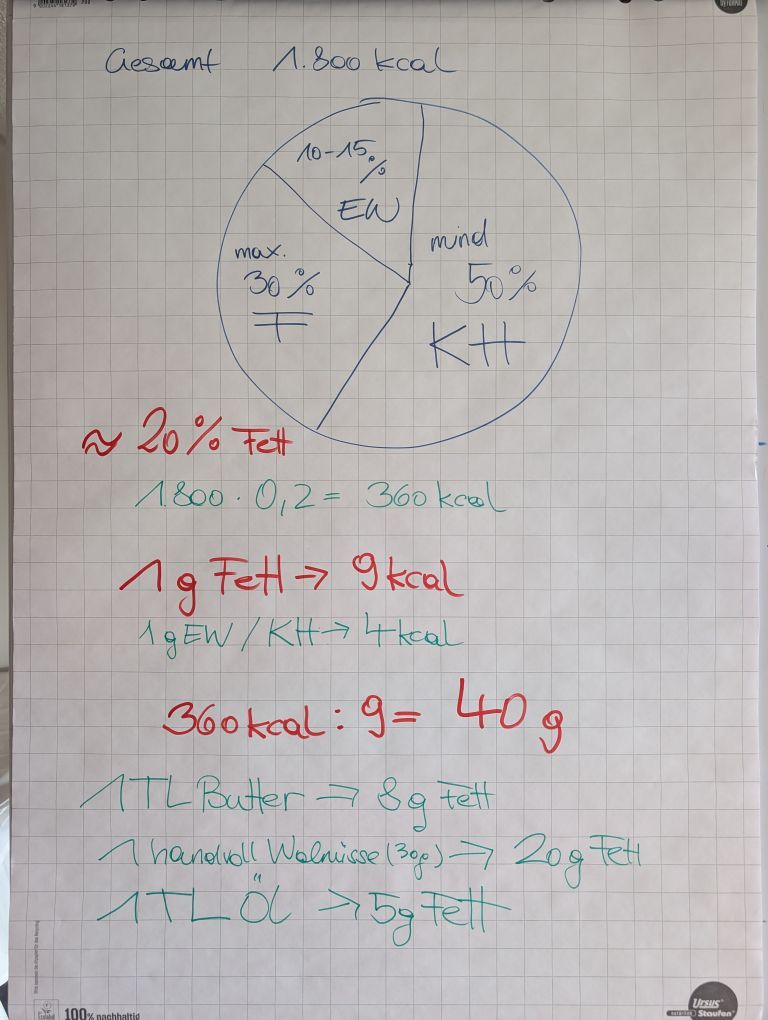 Gesamt 1.800 kcal
10-15 %
EW
max.
30%
F
mind
50%
KH
≈ 20% Fett
1.800 · 0,2 = 360 kcal
1 g Fett → 9 kcal
1 g EW / KH → 4 kcal
360 kcal : 9 = 40 g
1 TL Butter → 8 g Fett
1 handvoll Walnüsse (30g) → 20 g Fett
1 TL Öl → 5 g Fett
100% nachhaltig
Ursus
Staufen